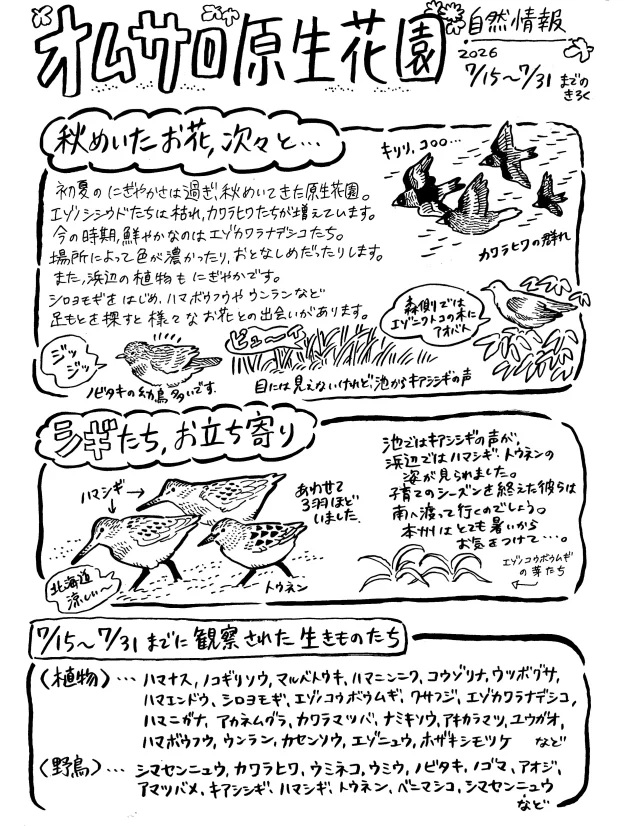 オムサロ原生花園
自然情報
2026
7/15～7/31までの
きろく
秋めいたお花、次々と…
キリリ、コロロ…
カワラヒワの群れ
初夏のにぎやかさは過ぎ、秋めいてきた原生花園。
エゾノシシウドたちは枯れ、カワラヒワたちが増えています。
今の時期、鮮やかなのはエゾカワラナデシコたち。
場所によって色が濃かったり、おとなしめだったりします。
また、浜辺の植物もにぎやかです。
シロヨモギをはじめ、ハマボウフウやウンランなど
足もとを探すと様々なお花との出会いがあります。
森側では
エゾニワトコの木に
アオバト
ジッ
ジッ
ノビタキの幼鳥多いです。
ピューイ
目には見えないけれど、池からキアシシギの声
シギたち、お立ち寄り
ハマシギ
あわせて
3羽ほど
いました。
トウネン
北海道
涼しい～
池ではキアシシギの声が、
浜辺ではハマシギ、トウネンの
姿が見られました。
子育てのシーズンを終えた彼らは
南へ渡って行くのでしょう。
本州はとても暑いから
お気をつけて…。
エゾノコウボウムギ
の芽たち
7/15～7/31までに観察された生きものたち
〈植物〉…ハマナス、ノコギリソウ、マルバトウキ、ハマニンニク、コウゾリナ、ウツボグサ、
ハマエンドウ、シロヨモギ、エゾノコウボウムギ、クサフジ、エゾカワラナデシコ、
ハマニガナ、アカネムグラ、カワラマツバ、ナミキソウ、アキカラマツ、ユウガオ、
ハマボウフウ、ウンラン、カセンソウ、エゾニュウ、ホザキシモツケ など
〈野鳥〉…シマセンニュウ、カワラヒワ、ウミネコ、ウミウ、ノビタキ、ノゴマ、アオジ、
アマツバメ、キアシシギ、ハマシギ、トウネン、ベニマシコ、シマセンニュウ
など